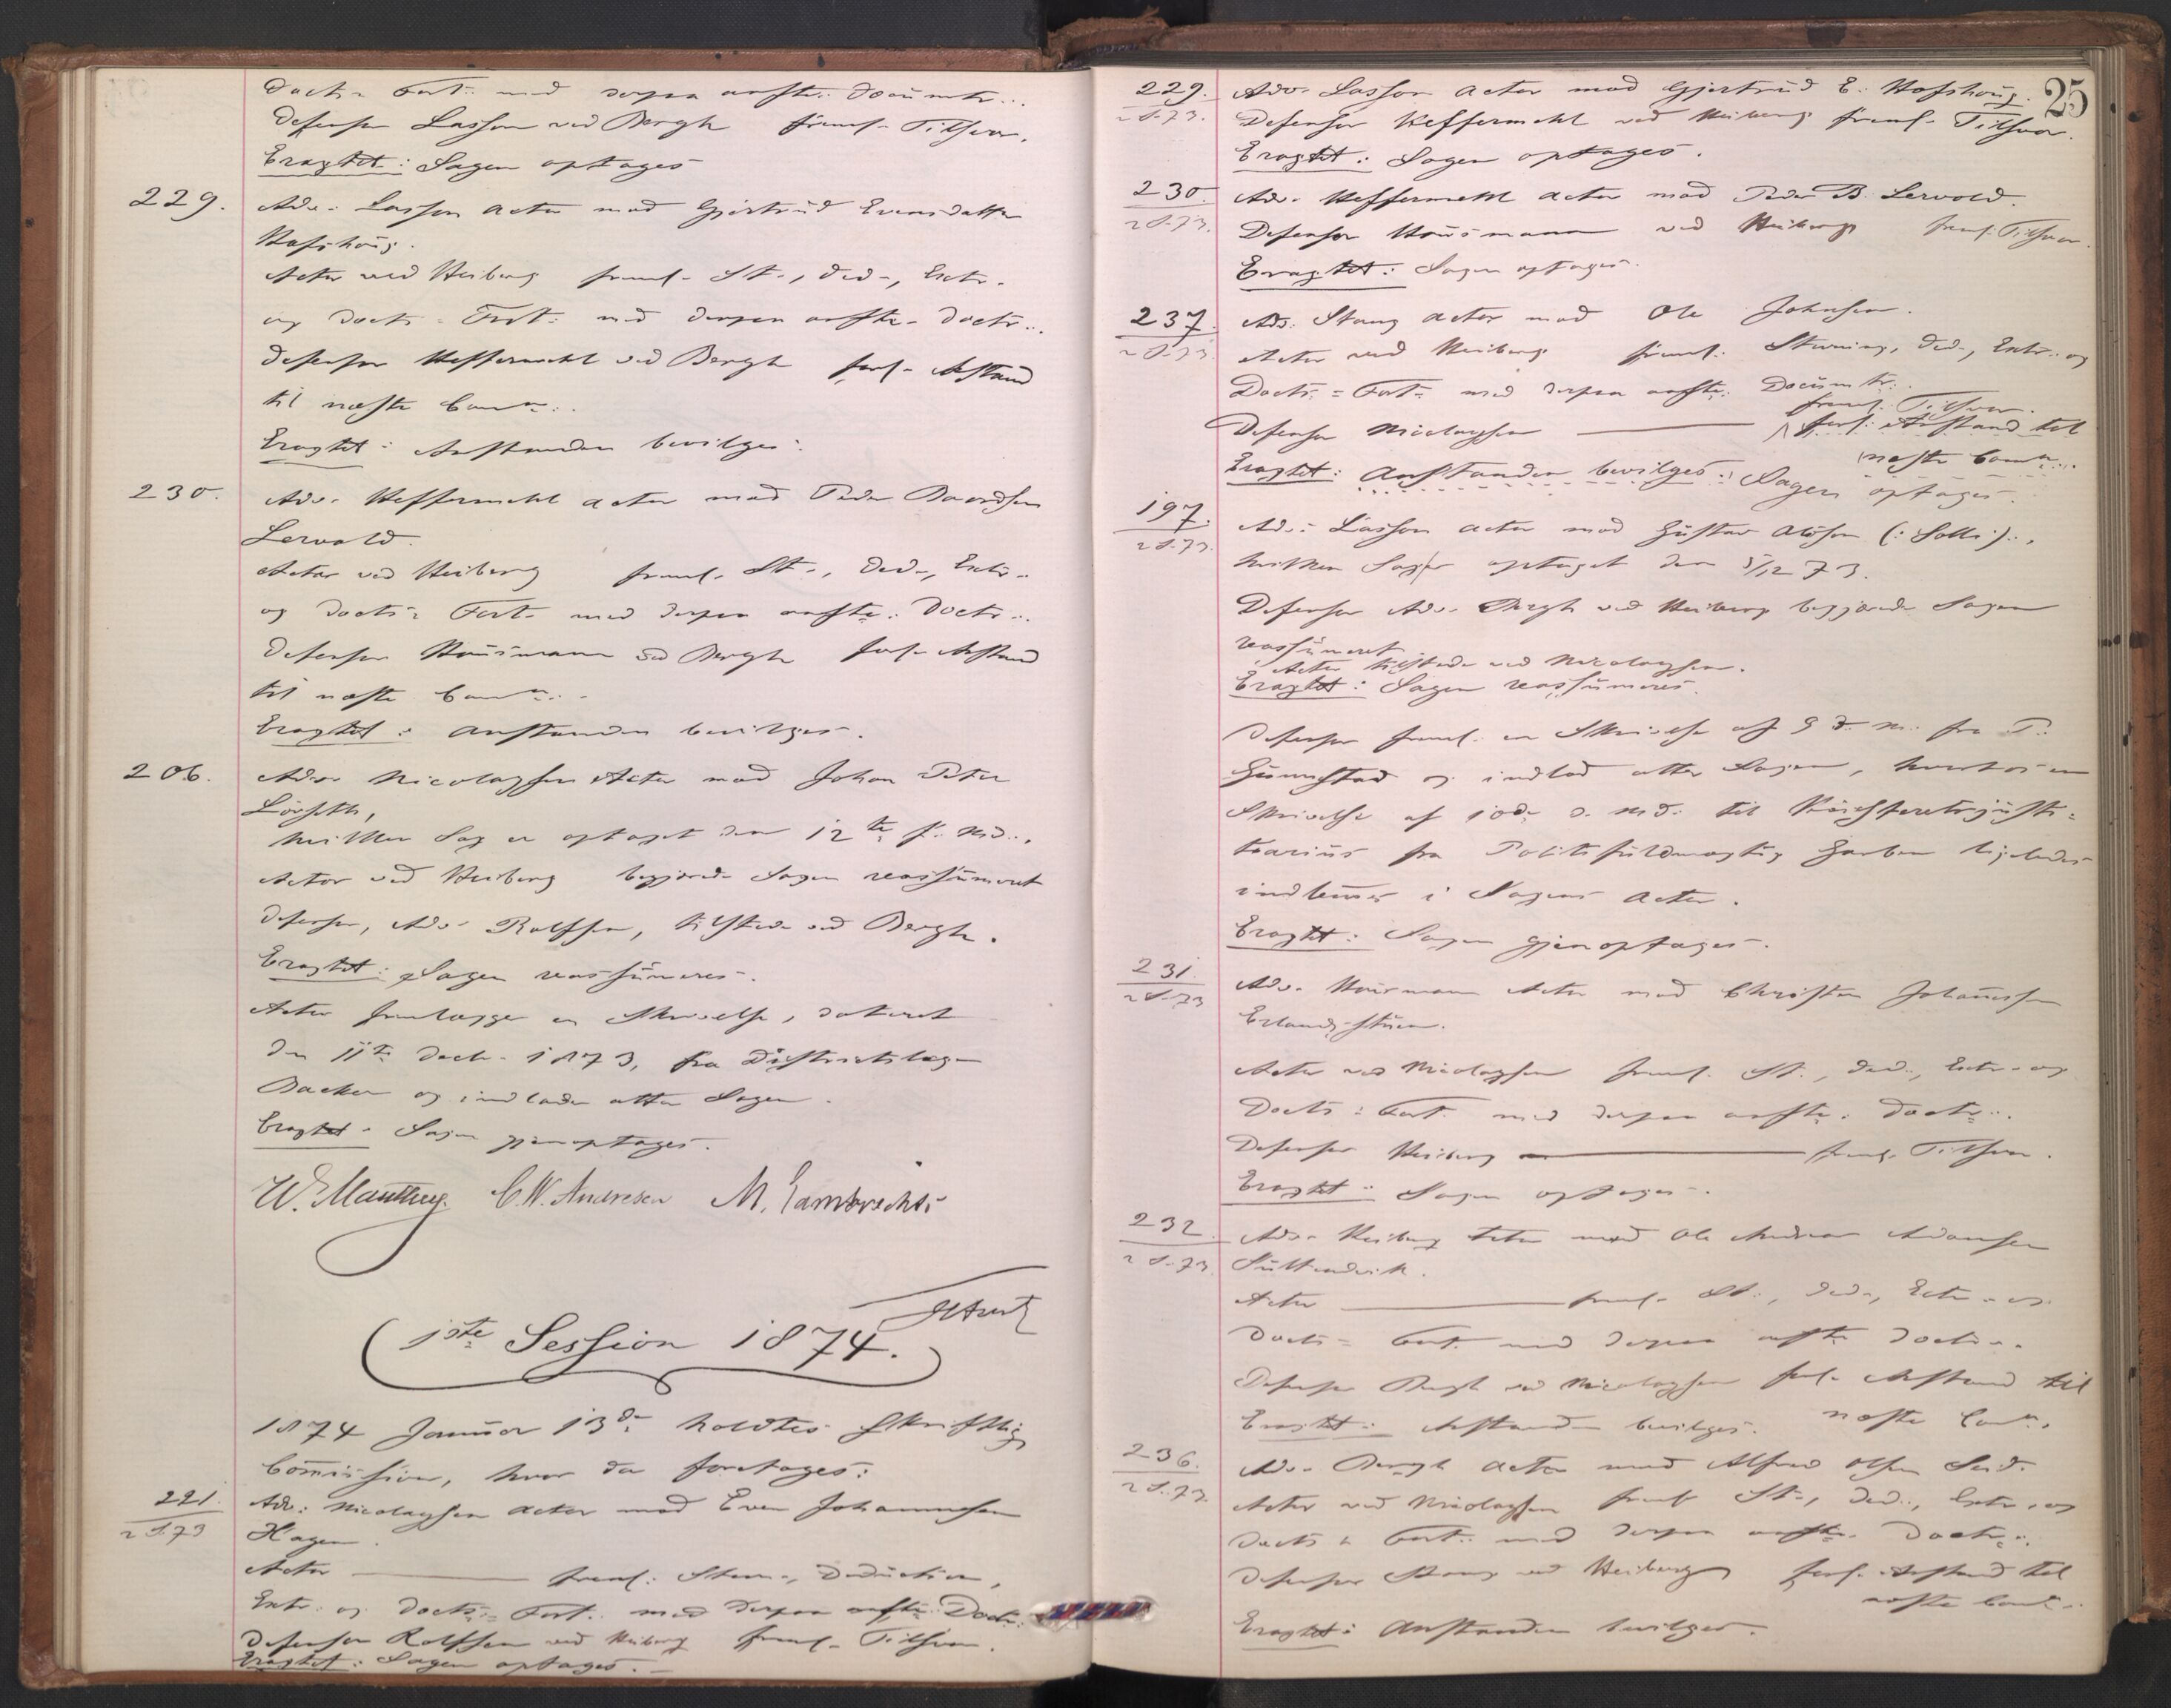 Docts- Fort.. med derpaa anførte Documtr...
Defensor Lasson ved Bergh freml- Tilsvar.
Eragtet: Sagen optages
229. Adv- Lasson Actor mod Gjertrüd Evensdatter
Hofshoüg.
Actor ved Heiberg freml- St-, Ded-, Extr-
og Docts- Fort: med derpaa anførte- Doctr...
Defensor Heffermehl ved Bergh forl- Anstand
til næste Comn...
Eragtet: Anstanden bevilges.
230. Adv- Heffermehl Actor mod Peder Baardsen
Lervold.
Actor ved Heiberg freml- St-, Ded-, Extr-
og Docts- Fort- med derpaa anførte. Doctr...
Defensor Hoüsmann ved Bergh forl- Anstand
til næste Comn...
Eragtet: Anstanden bevilges.
206. Adv- Nicolaysen Actor mod Johan Peter
Löfseth,
hvilken Sag er optaget den 12te f. Md..
Actor ved Heiberg begjærede Sagen reassümeret
Defensor, Adv- Rolfsen, tilstede ved Bergh.
Eragtet: Sagen reassümeres.
Actor fremlægger en Skrivelse, dateret
den 11te Decbr- 1873, fra Districtslæge
Backer og indlader atter Sagen.
Eragtet- Sagen gjenoptages.
W. Manthey. C.W. Andresen M. Lambrechts
1ste Session 1874.
1874 Janüar 13de holdtes Skriftlig
Commission, hvor da foretages:
221. Adv: Nicolaysen Actor mod Even Johannesen
2 S. 73 Hagen.
Actor ——— freml: Stevn-, Dedüction,
Extr. og Docts- Fort. med derpaa anførte Doctr:
Defensor Rolfsen ved Heiberg freml- Tilsvar.
Eragtet: Sagen optages.-
25
229. Adv- Lasson Actor mod Gjertrüd E. Hofshoüg.
2 S. 73. Defensor Heffermehl ved Heiberg freml- Tilsvar.
Eragtet: Sagen optages.
230. Adv- Heffermehl Actor mod Peder B. Lervold.
2 S. 73. Defensor Hoüsmann ved Heiberg freml. Tilsvar.
Eragtet: Sagen optages.
237. Adv. Stang Actor mod Ole Johnsen.
2 S. 73. Actor ved Heiberg freml: Stevning, Ded-, Extr.. og
Docts- Fort- med derpaa anførte. Documtr..
freml: Tilsvar.
Defensor Nicolaysen ——— forl: Anstand til
næste Comn...
Eragtet: Anstanden bevilges: Sagen optages.
197. Adv- Lasson Actor mod Güstav Olsen (: Solli):,
2 S. 73. hvilken Sag er optaget den 5/12 73.
Defensor Adv- Bergh ved Heiberg begjærede Sagen
reassümeret
Actor tilstede ved Nicolaysen.
Eragtet: Sagen reassümeres.
Defensor freml. en Skrivelse af 9 d. M. fra P.
og indlod atter Sagen, hvorhos en
Skrivelse af 10de d. Md. til Høiesteretsjüsti-
tiarius fra Politifüldmægtig ligeledes
indlemmes i Sagens Acter.
Eragtet: Sagen gjenoptages.
231. Adv- Hoüsmann Actor mod Christen Johannesen
2 S. 73 Erlandsstüen.
Actor ved Nicolaysen freml. St., Ded., Extr- og
Docts- Fort. med derpaa anførte. Doctr...
Defensor Heiberg ——— freml. Tilsvar.
Eragtet: Sagen optages-.
232. Adv- Heiberg Actor mod Ole Andreas Adamsen
2 S. 73.
Actor ——— freml- St., Ded-, Extr- og
Docts- Fort. med derpaa anførte Doctr..
Defensor Bergh ved Nicolaysen forl- Anstand til
næste Comn.
Eragtet: Anstanden bevilges.
236. Adv- Bergh Actor mod Alfred Olsen
2 S. 73. Actor ved Nicolaysen freml St-, Ded.., Extr. og
Docts- Fort.. med derpaa anførte. Doctr..
Defensor Stang ved Heiberg forl- Anstand til
næste Comn-
Eragtet: Anstanden bevilges.